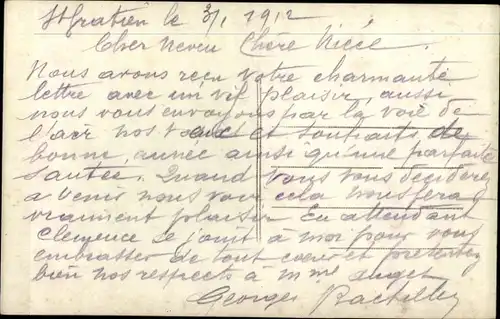 St Gratien le 3/1 1912
Cher Neveu Chère Nièce.
Nous avons reçu votre charmante
lettre avec un vif plaisir, aussi
nous vous envoyons par la voie de
l'air nos vœux et souhaits de
bonne année ainsi qu'une parfaite
santée. Quand vous vous deciderez
a venir nous voir cela nous fera
vraiment plaisir En attendant
Clemence se joint à moi pour vous
embrasser de tout cœur et presentez
bien nos respects à mme Auget
Georges